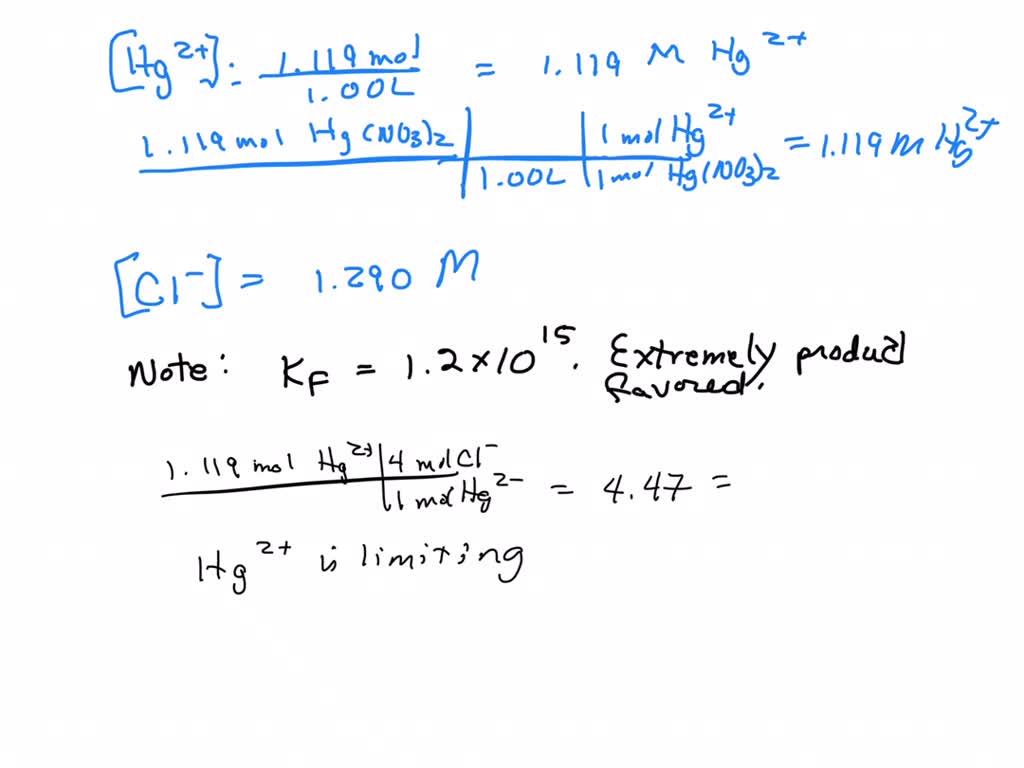 [Hg²⁺]: 1.119 mol / 1.00L = 1.119 M Hg²⁺
1.119 mol Hg(NO3)2 | 1 mol Hg²⁺ = 1.119 M Hg²⁺
1.00L | 1 mol Hg(NO3)2
[Cl⁻] = 1.290 M
Note: KF = 1.2×10¹⁵. Extremely product
favored.
1.119 mol Hg²⁺ | 4 mol Cl⁻
1 mol Hg²⁻ = 4.47 =
Hg²⁺ is limiting